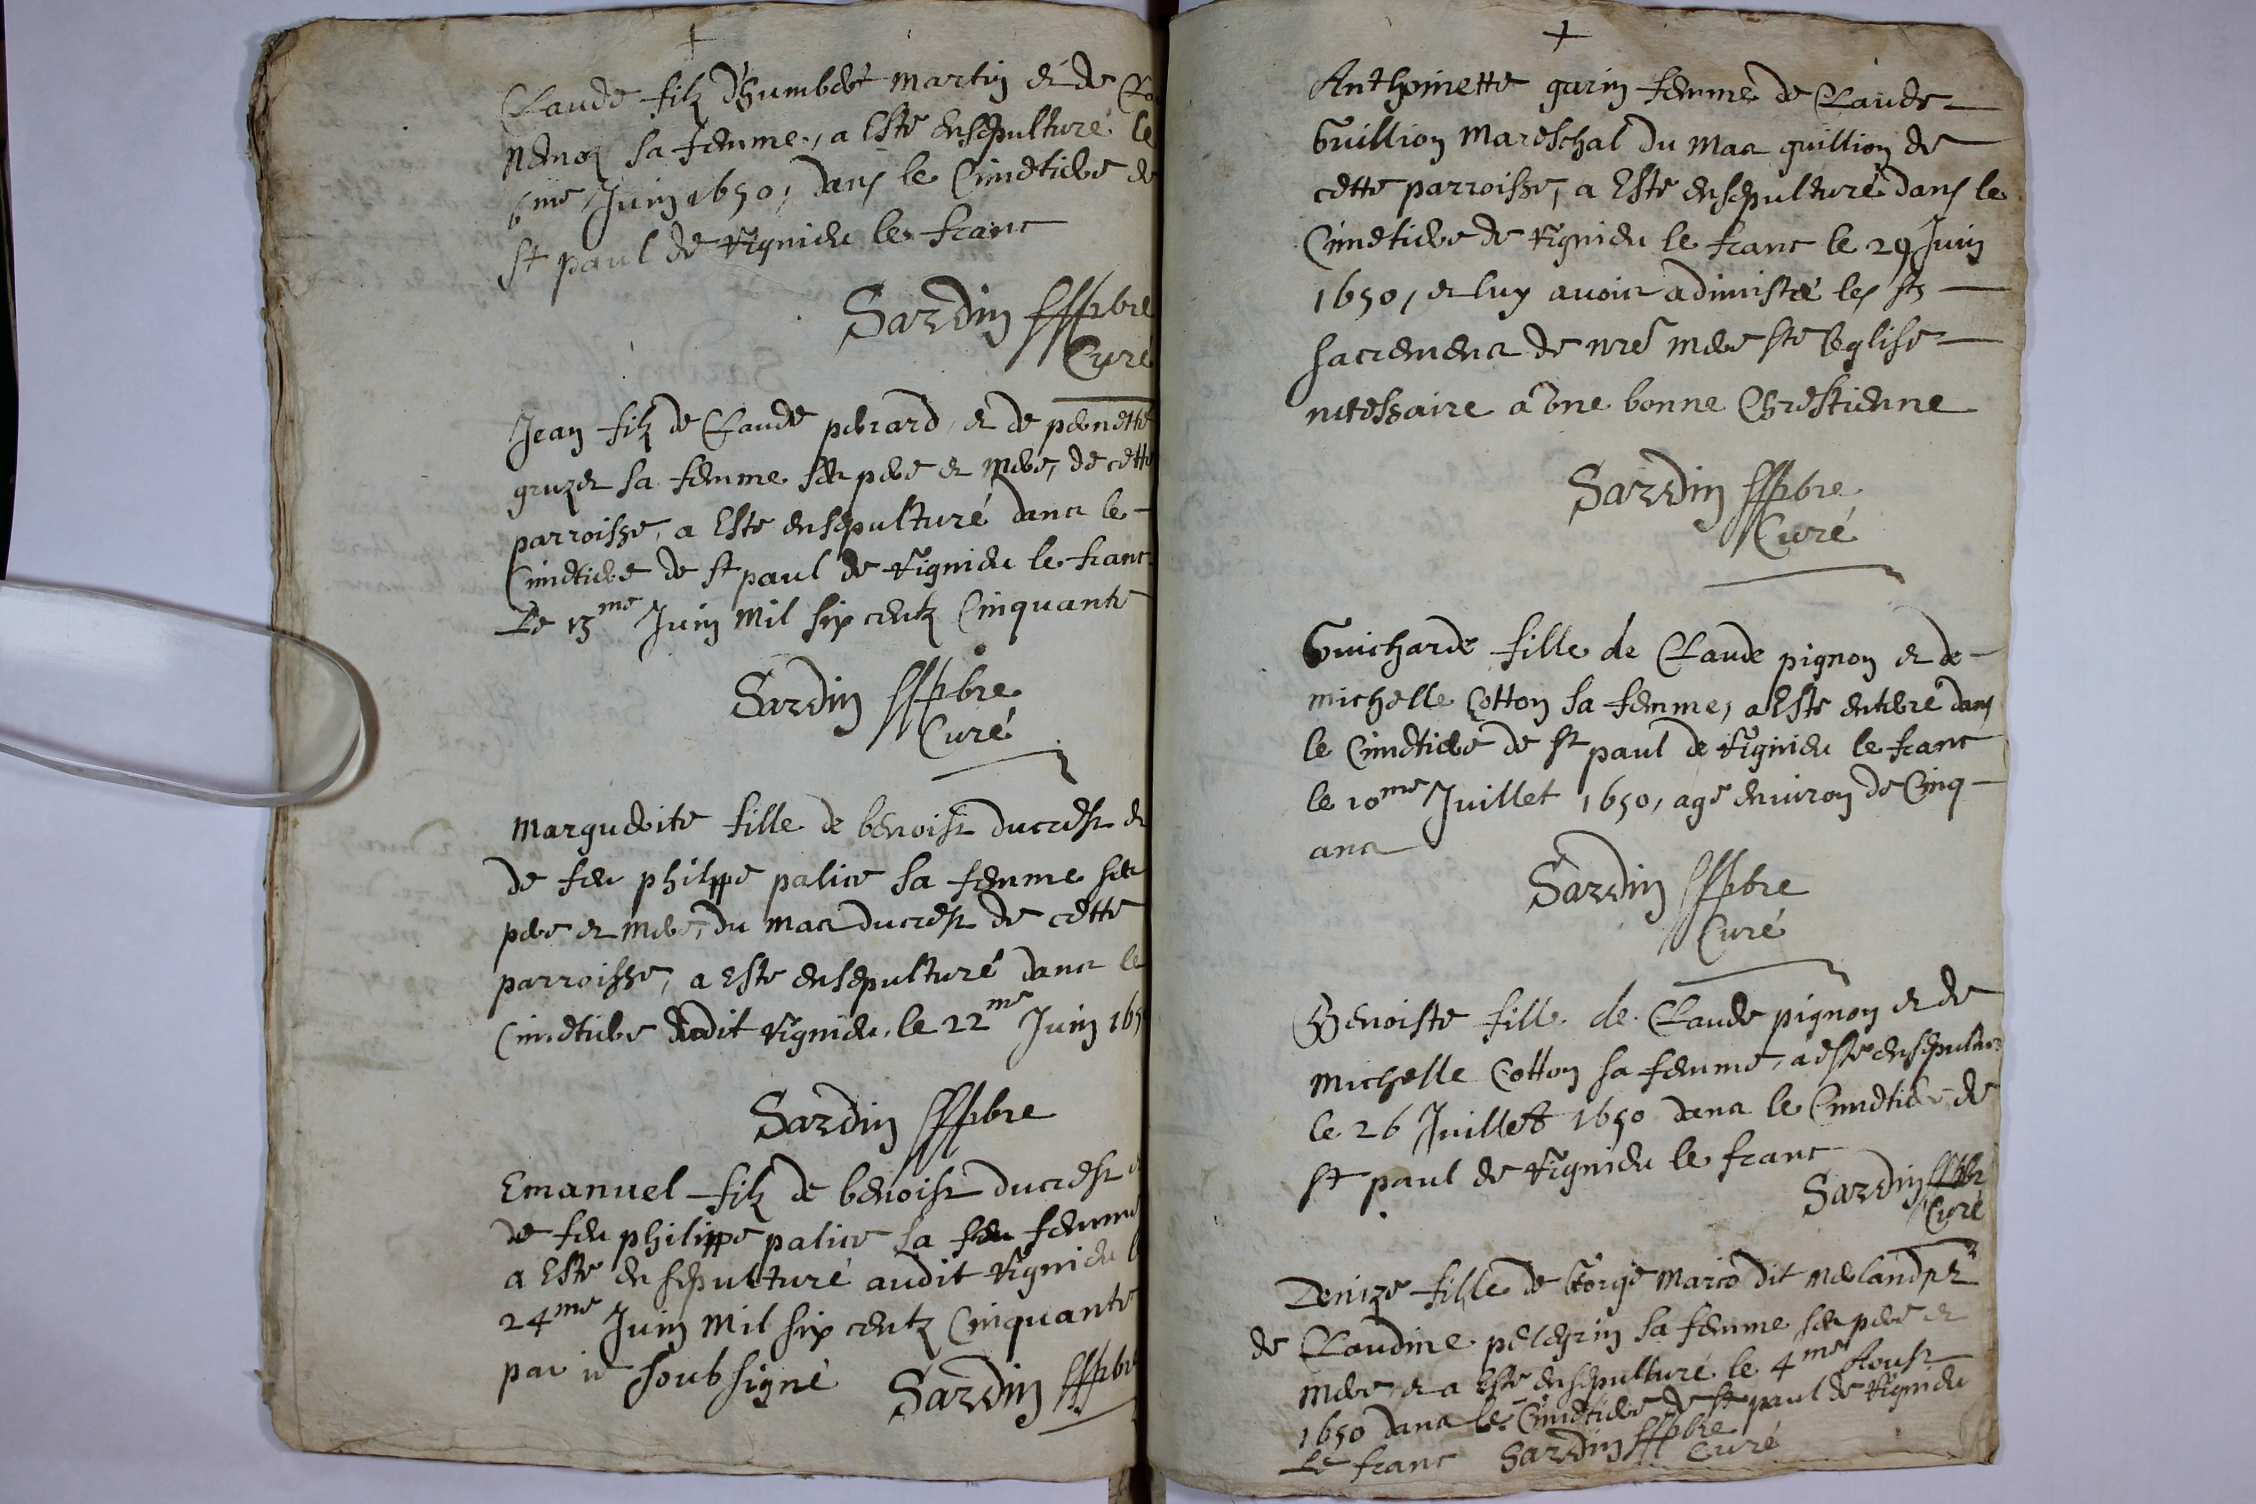 Claude filz d'humbert martin et de
sa femme, a Esté ensepulturé le
6me Juin 1650, dans le Cimetiere de
st paul de Vignieu le franc
Sardin pbre
Curé
Jean filz de Claude perrard, et de pernette
gruzet sa femme ses pere et mere, de cette
parroisse, a Esté ensepulturé dans le
Cimetiere de st paul de Vignieu le franc
Le 13me Juin mil six centz Cinquante
Sardin pbre
Curé
marguerite fille de benoist ducrest et
de feu philippe palice sa femme ses
pere et mere, du mas ducrest de cette
parroisse, a Esté ensepulturé dans le
Cimetiere dudit Vignieu le 22me Juin 165
Sardin pbre
Emanuel filz de benoist ducrest
de feu philippe palice sa feu femme
a Esté ensepulturé audit Vignieu le
24me Juin mil six centz Cinquante
par je soubsigné Sardin pbre
Anthoinette garin femme de Claude
Guillion mareschal du mas guillion de
cette parroisse, a Esté ensepulturé dans le
Cimetiere de Vignieu le franc le 29 Juin
1650, et luy avoir adimistré les sts
sacremens de nre mere ste Eglise
necessaire a une bonne Chrestienne
Sardin pbre
Curé
Guicharde fille de Claude pignon et de
michelle Cotton sa femme, a Esté enteré dans
le Cimetiere de st paul de Vignieu le franc
le 10me Juillet 1650, agé environ de Cinq
ans
Sardin pbre
Curé
Benoiste fille de Claude pignon et de
michelle Cotton sa femme, a esté ensepulturé
le 26 Juillet 1650 dans le Cimetiere de
st paul de Vignieu le franc
Sardin pbr
Curé
Denize fille de George marco dit
de Claudine pelegrin sa femme ses pere et
mere, et a Esté ensepulturé le 4me Aoust
1650 dans le Cimetiere de st paul de Vignieu
Le franc Sardin pbre
Curé